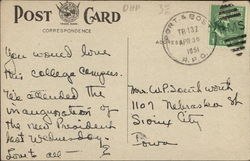 POST CARD
CORRESPONDENCE
You would love
this college campus.
We attended the
inauguration of
the new President
last Wednesday.
Love to all —
TR.132
APR 30
1951
R.P.O.
Mrs. O.P. Southworth
1107 Nebraska St
Sioux City
Iowa